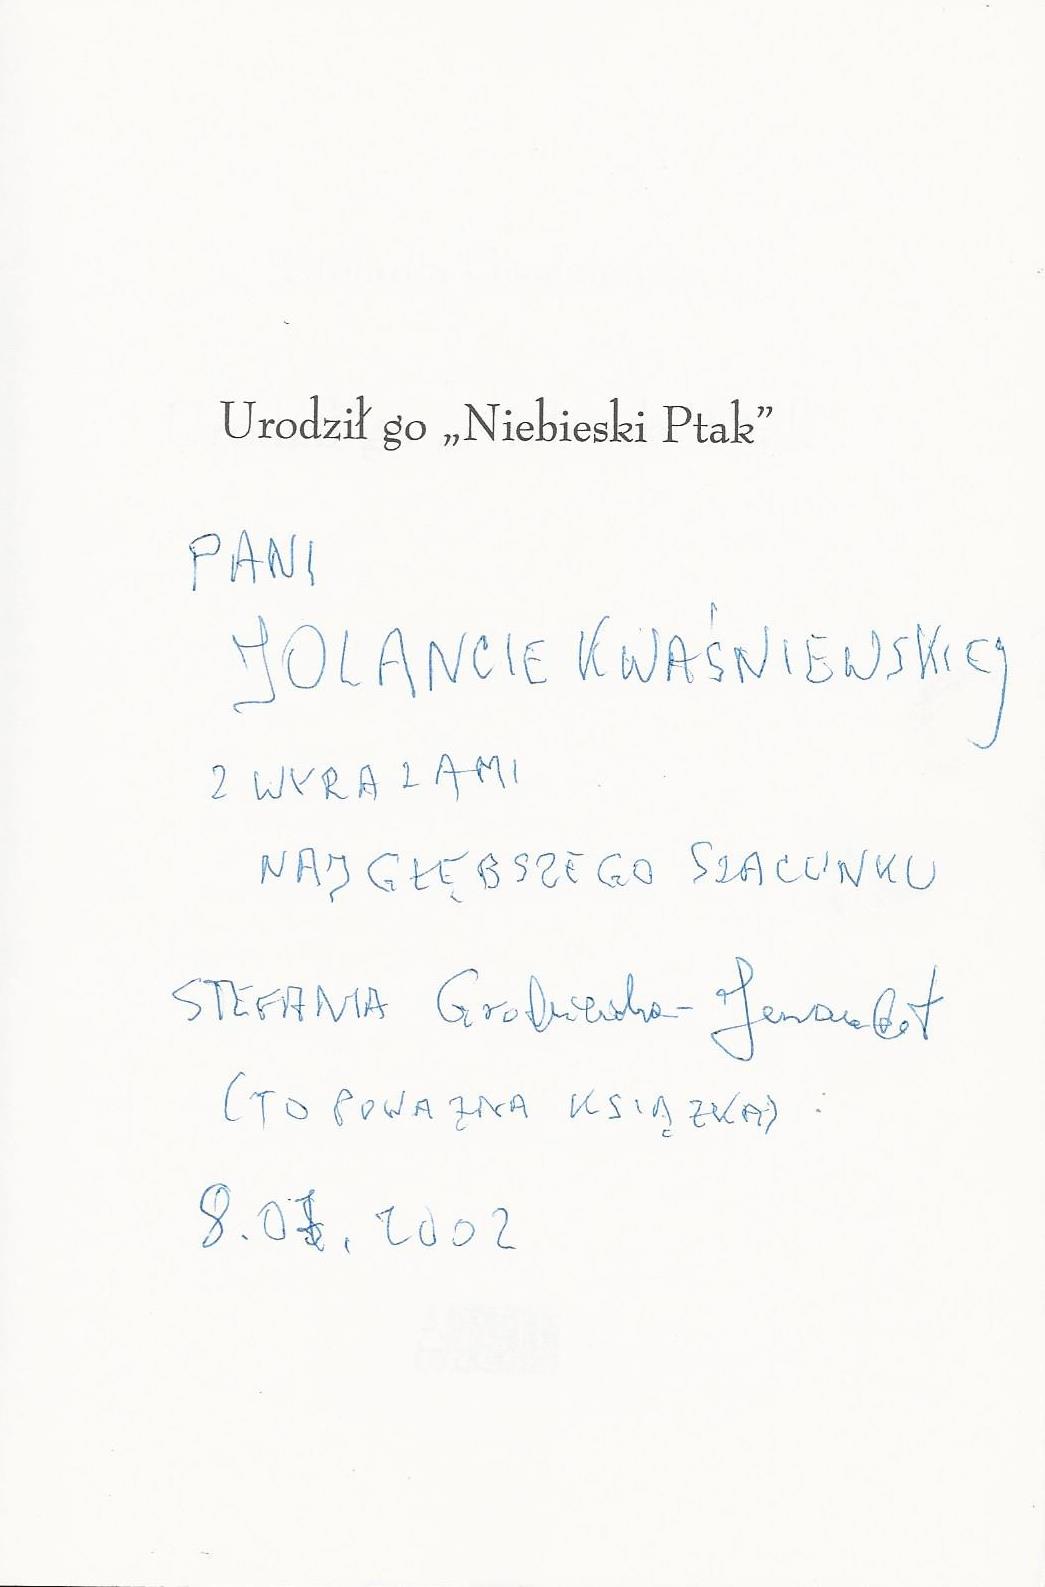 Urodził go „Niebieski Ptak”
PANI
JOLANCIE KWAŚNIEWSKIEJ
Z WYRAZAMI
NAJGŁĘBSZEGO SZACUNKU
STEFANIA Grodzieńska-Jurandot
(TO POWAŻNA KSIĄŻKA)
2002